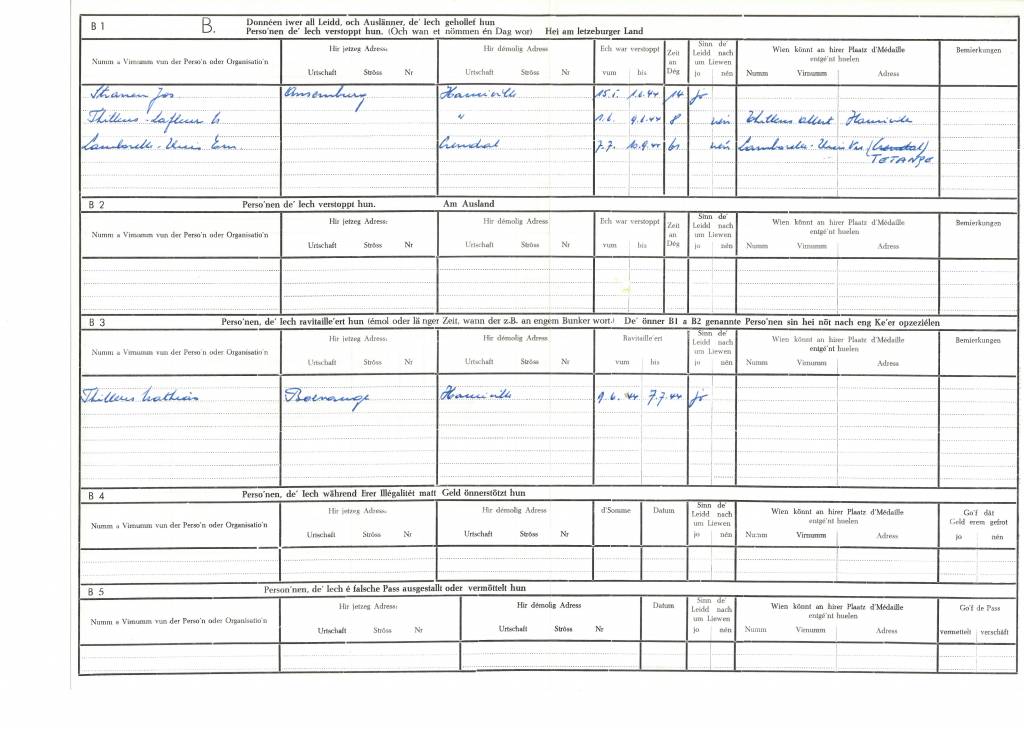 B 1 B. Donnéen iwer all Leidd, och Auslänner, de' Iech gehollef hun
Perso'nen de' Iech verstoppt hun. (Och wan et nömmen én Dag wor) Hei am letzeburger Land
Numm a Virnumm vun der Perso'n oder Organisatio'n
Hir jetzeg Adress: Urtschaft Ströss Nr
Hir démolig Adress Urtschaft Ströss Nr
Ech war verstoppt vum bis
Zeit an Dég
Sinn de' Leidd nach um Liewen jo nén
Wien könnt an hirer Plaatz d'Médaille entgé'nt huelen Numm Virnumm Adress
Bemierkungen
Stranen Jos. Ansemburg Hamiville 15.5. 1.6.44 14 jo
Thillens-Lafleur " 1.6. 9.6.44 8 nein Thillens Albert Hamiville
Lamborelle Em. Crendal 7.7. 10.9.44 61 nein Lamborelle (Crendal)
TETANGE
B 2 Perso'nen de' Iech verstoppt hun. Am Ausland
Numm a Virnumm vun der Perso'n oder Organisatio'n
Hir jetzeg Adress: Urtschaft Ströss Nr
Hir démolig Adress Urtschaft Ströss Nr
Ech war verstoppt vum bis
Zeit an Dég
Sinn de' Leidd nach um Liewen jo nén
Wien könnt an hirer Plaatz d'Médaille entgé'nt huelen Numm Virnumm Adress
Bemierkungen
B 3 Perso'nen, de' Iech ravitaille'ert hun (émol oder länger Zeit, wann der z.B. an engem Bunker wort.) De' önner B1 a B2 genannte Perso'nen sin hei nöt nach eng Ke'er opzeziélen
Numm a Virnumm vun der Perso'n oder Organisatio'n
Hir jetzeg Adress: Urtschaft Ströss Nr
Hir démolig Adress Urtschaft Ströss Nr
Ravitaille'ert vum bis
Sinn de' Leidd nach um Liewen jo nén
Wien könnt an hirer Plaatz d'Médaille entgé'nt huelen Numm Virnumm Adress
Bemierkungen
Thillens Mathias Boevange Hamiville 9.6.44 7.7.44 jo
B 4 Perso'nen, de' Iech während Erer Illégalitét matt Geld önnerstötzt hun
Numm a Virnumm vun der Perso'n oder Organisatio'n
Hir jetzeg Adress: Urtschaft Ströss Nr
Hir démolig Adress Urtschaft Ströss Nr
d'Somme
Datum
Sinn de' Leidd nach um Liewen jo nén
Wien könnt an hirer Plaatz d'Médaille entgé'nt huelen Numm Virnumm Adress
Go'f dât Geld erem gefrot jo nén
B 5 Person'nen, de' Iech é falsche Pass ausgestallt oder vermöttelt hun
Numm a Virnumm vun der Perso'n oder Organisatio'n
Hir jetzeg Adress: Urtschaft Ströss Nr
Hir démolig Adress Urtschaft Ströss Nr
Datum
Sinn de' Leidd nach um Liewen jo nén
Wien könnt an hirer Plaatz d'Médaille entgé'nt huelen Numm Virnumm Adress
Go'f de Pass vermettelt verschâft